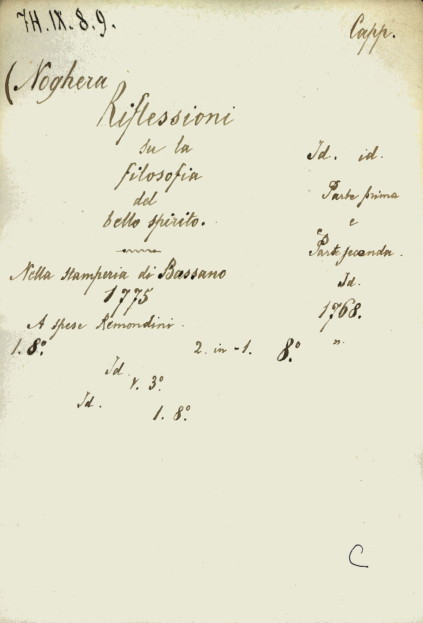 7H.IX.8.9.
Capp.
(Noghera
Riflessioni
su la
filosofia
del
bello spirito.
Nella stamperia di Bassano
1775
A spese Remondini.
1. 8º
Id. id.
Parte prima
e
Parte seconda.
Id.
1768.
2. in -1. 8º
Id.
v. 3º
Id.
1. 8º
C